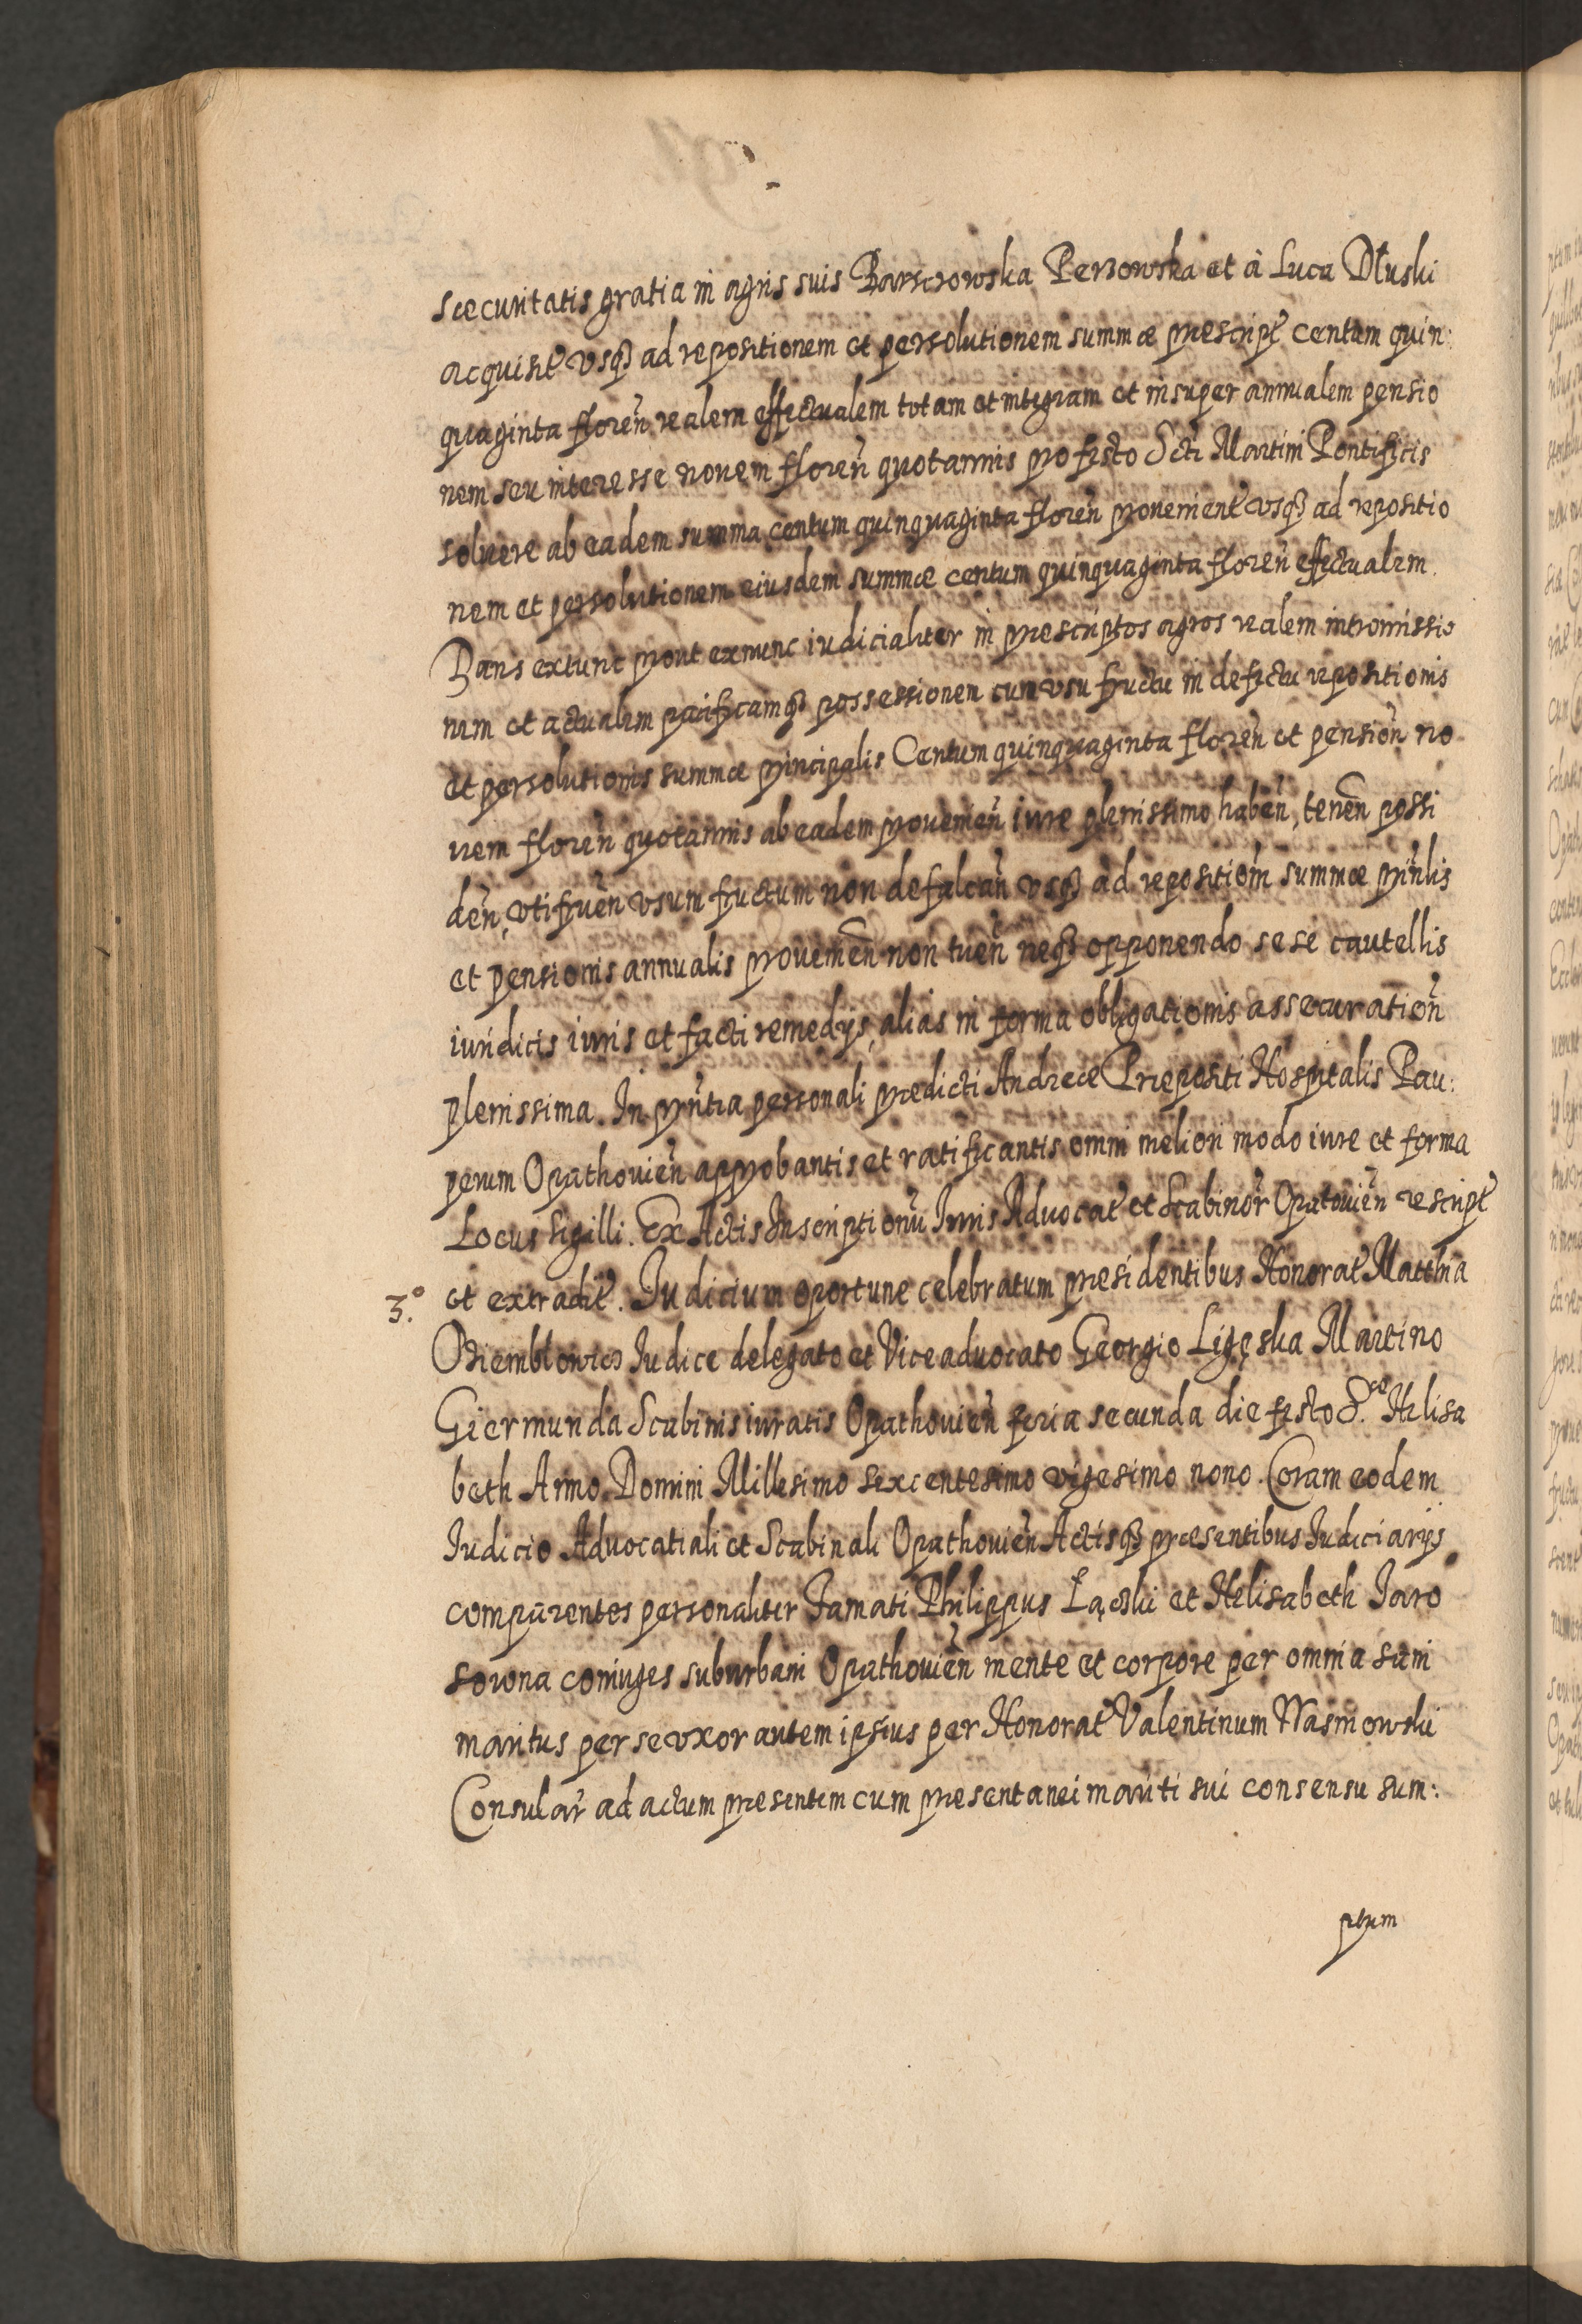 scecuritatis gratia in agris suis Barszowska Perzowska et à Luca Dłuski
acquisit̃ vsq̃ ad repositionem et persolutionem summæ prescript̃ centum quin:
quaginta floreñ realem effectualem totam et integram et insuper annualem pensio
nem seu interesse novem floreñ quotannis pro festo Scti Martini Pontificis
soluere ab eadem summa centum quinquaginta floreñ prouenient̃ vsq̃ ad repositio
nem et persolutionem eiusdem summæ centum quinquaginta floreñ effectualem.
Dans extunc prout exnunc iudicialiter in prescriptos agros realem intromissio
nem et actualem pacificamq̃ possessionem cum vsu fructu in defectu repositionis
et persolutionis summæ principalis Centum quinquaginta floreñ et pensioñ no
uem floreñ quotannis ab eadem prouenieñ iure plenissimo habeñ, teneñ possi
deñ, vtifrueñ vsum fructum non defalcañ vsq̃ ad repositiom̃ summæ prinlis
et pensionis annualis prouenieñ non tueñ neq̃ opponendo sese cautellis
iuridicis iuris et facti remedijs, alias in forma obligationis assecuratioñ
plenissima. In pñtia personali predicti Andreæ Præpositi Hospitalis Pau:
perum Opathouieñ approbantis et ratificantis omni meliori modo iure et forma
Locus sigilli. Ex Actis Inscriptionũ Iuris Aduocat̃ et Scabinor̃ Opatouieñ rescript̃
3.° et extradit̃. Iudicium oportune celebratum presidentibus Honorat̃ Matthia
Oziemblowicz Iudice delegato et Viceaduocato Georgio Ligęska Martino
Giermunda Scabinis iuratis Opathouieñ feria secunda die festo S.cæ Helisa
beth Anno Domini Millesimo sexcentesimo vigesimo nono. Coram eodem
Iudicio Aduocatiali et Scabinali Opathouieñ Actisq̃ præsentibus Iudiciarijs
comparentes personaliter Famati Philippus Łącki et Helisabeth Jaro
sowna coniuges suburbani Opathouieñ mente et corpore per omnia sani
maritus per se vxor autem ipsius per Honorat̃ Valentinum Wasniowski
Consular̃ ad actum presentem cum presentanei mariti sui consensu sum:
ptum